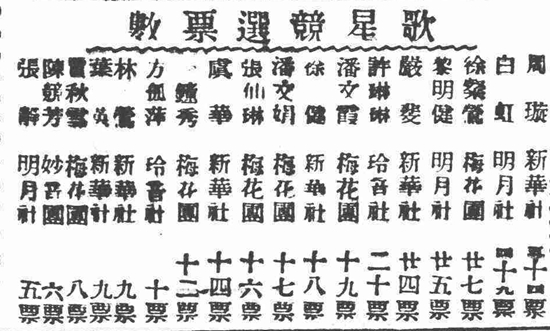 歌星競選票數
周璇 新華社 十四票
白虹 明月社 四十九票
徐粲鶯 梅花團 廿七票
黎明健 明月社 廿五票
嚴斐 新華社 廿四票
許琳琳 玲音社 二十票
潘文霞 梅花團 十九票
徐健 新華社 十八票
潘文娟 梅花團 十七票
張仙琳 梅花團 十六票
虞華 新華社 十四票
秀 梅花團 十二票
方萍 玲音社 十票
林鶯 新華社 九票
葉英 新華社 九票
秋雪 梅花團 八票
陳芳 妙音團 六票
張靜 明月社 五票